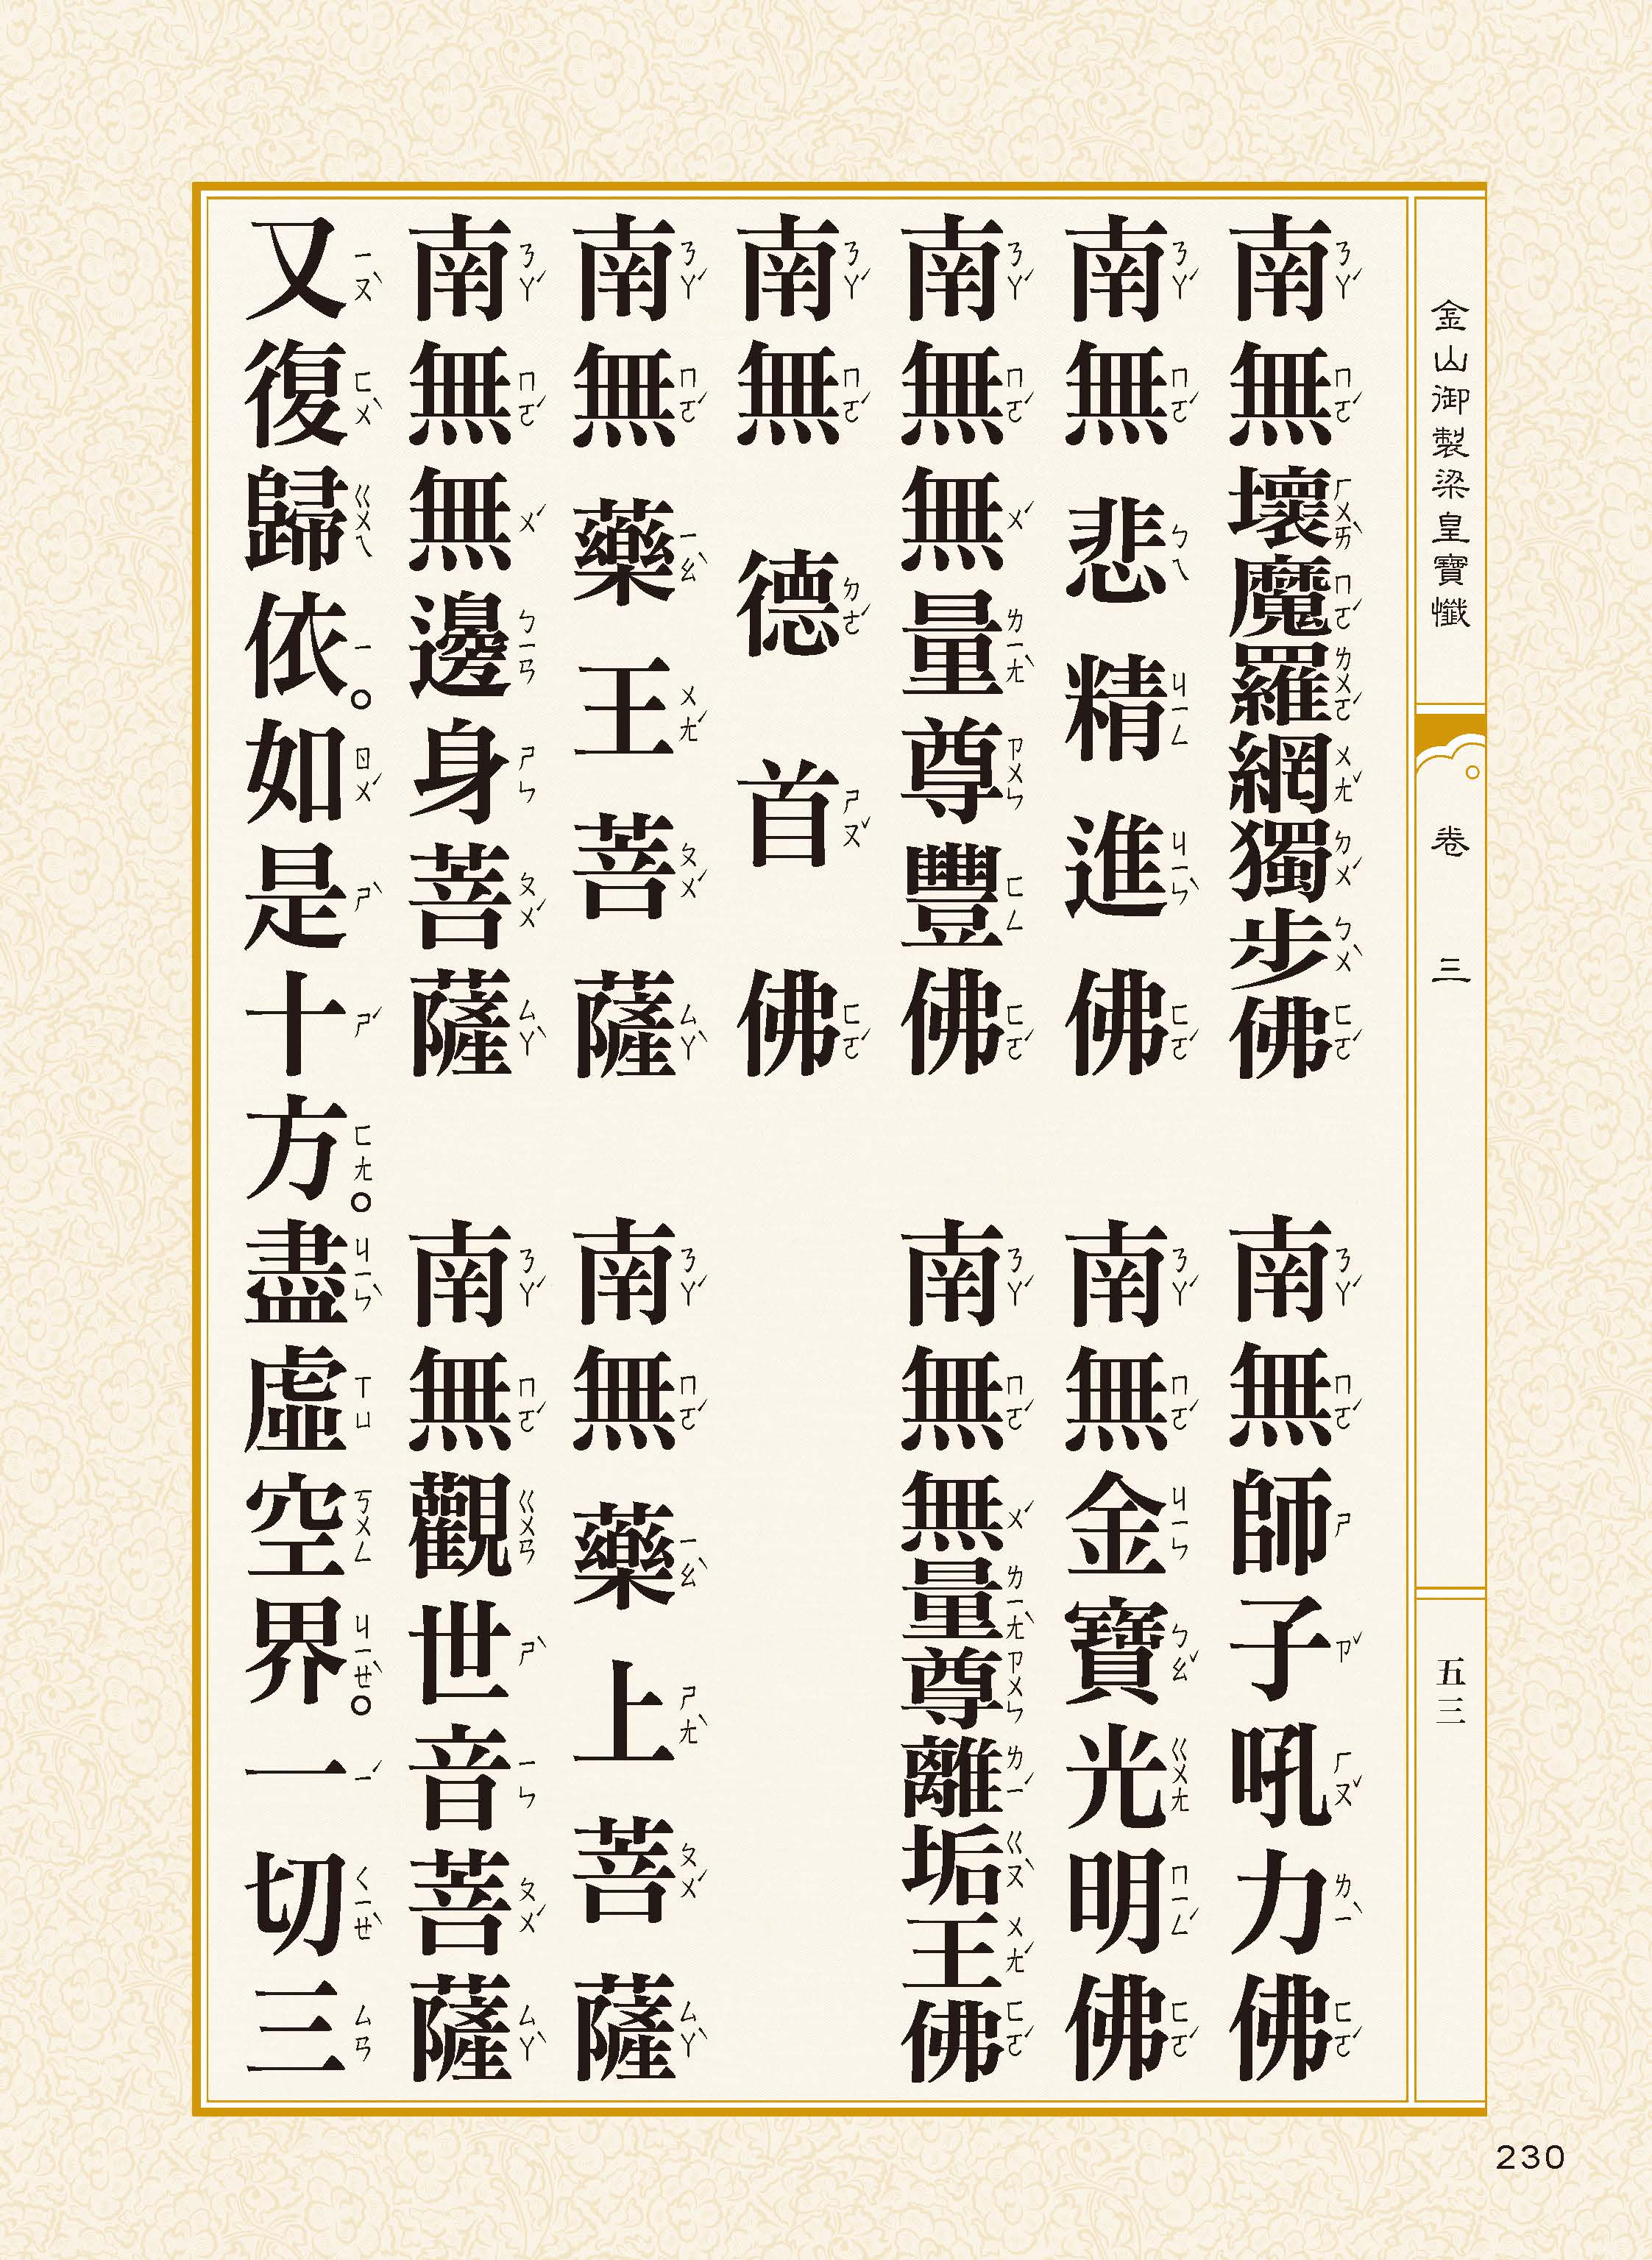 金山御製梁皇寶懺 卷三 五三
南無壞魔羅網獨步佛 南無師子吼力佛
南無悲精進佛 南無金寶光明佛
南無無量尊豐佛 南無無量尊離垢王佛
南無德首佛
南無藥王菩薩 南無藥上菩薩
南無無邊身菩薩 南無觀世音菩薩
又復歸依。如是十方。盡虛空界。一切三
230